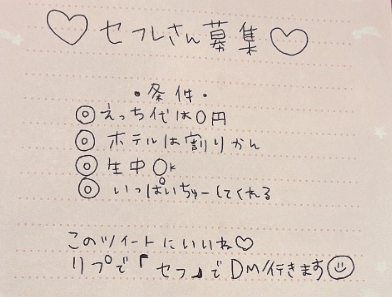 ♡セフレさん募集♡
・条件・
◎えっち代は0円
◎ホテルは割りかん
◎生中OK
◎いっぱいちゅーしてくれる
このツイートにいいね♡
リプで「セフ」でDM行きます☺